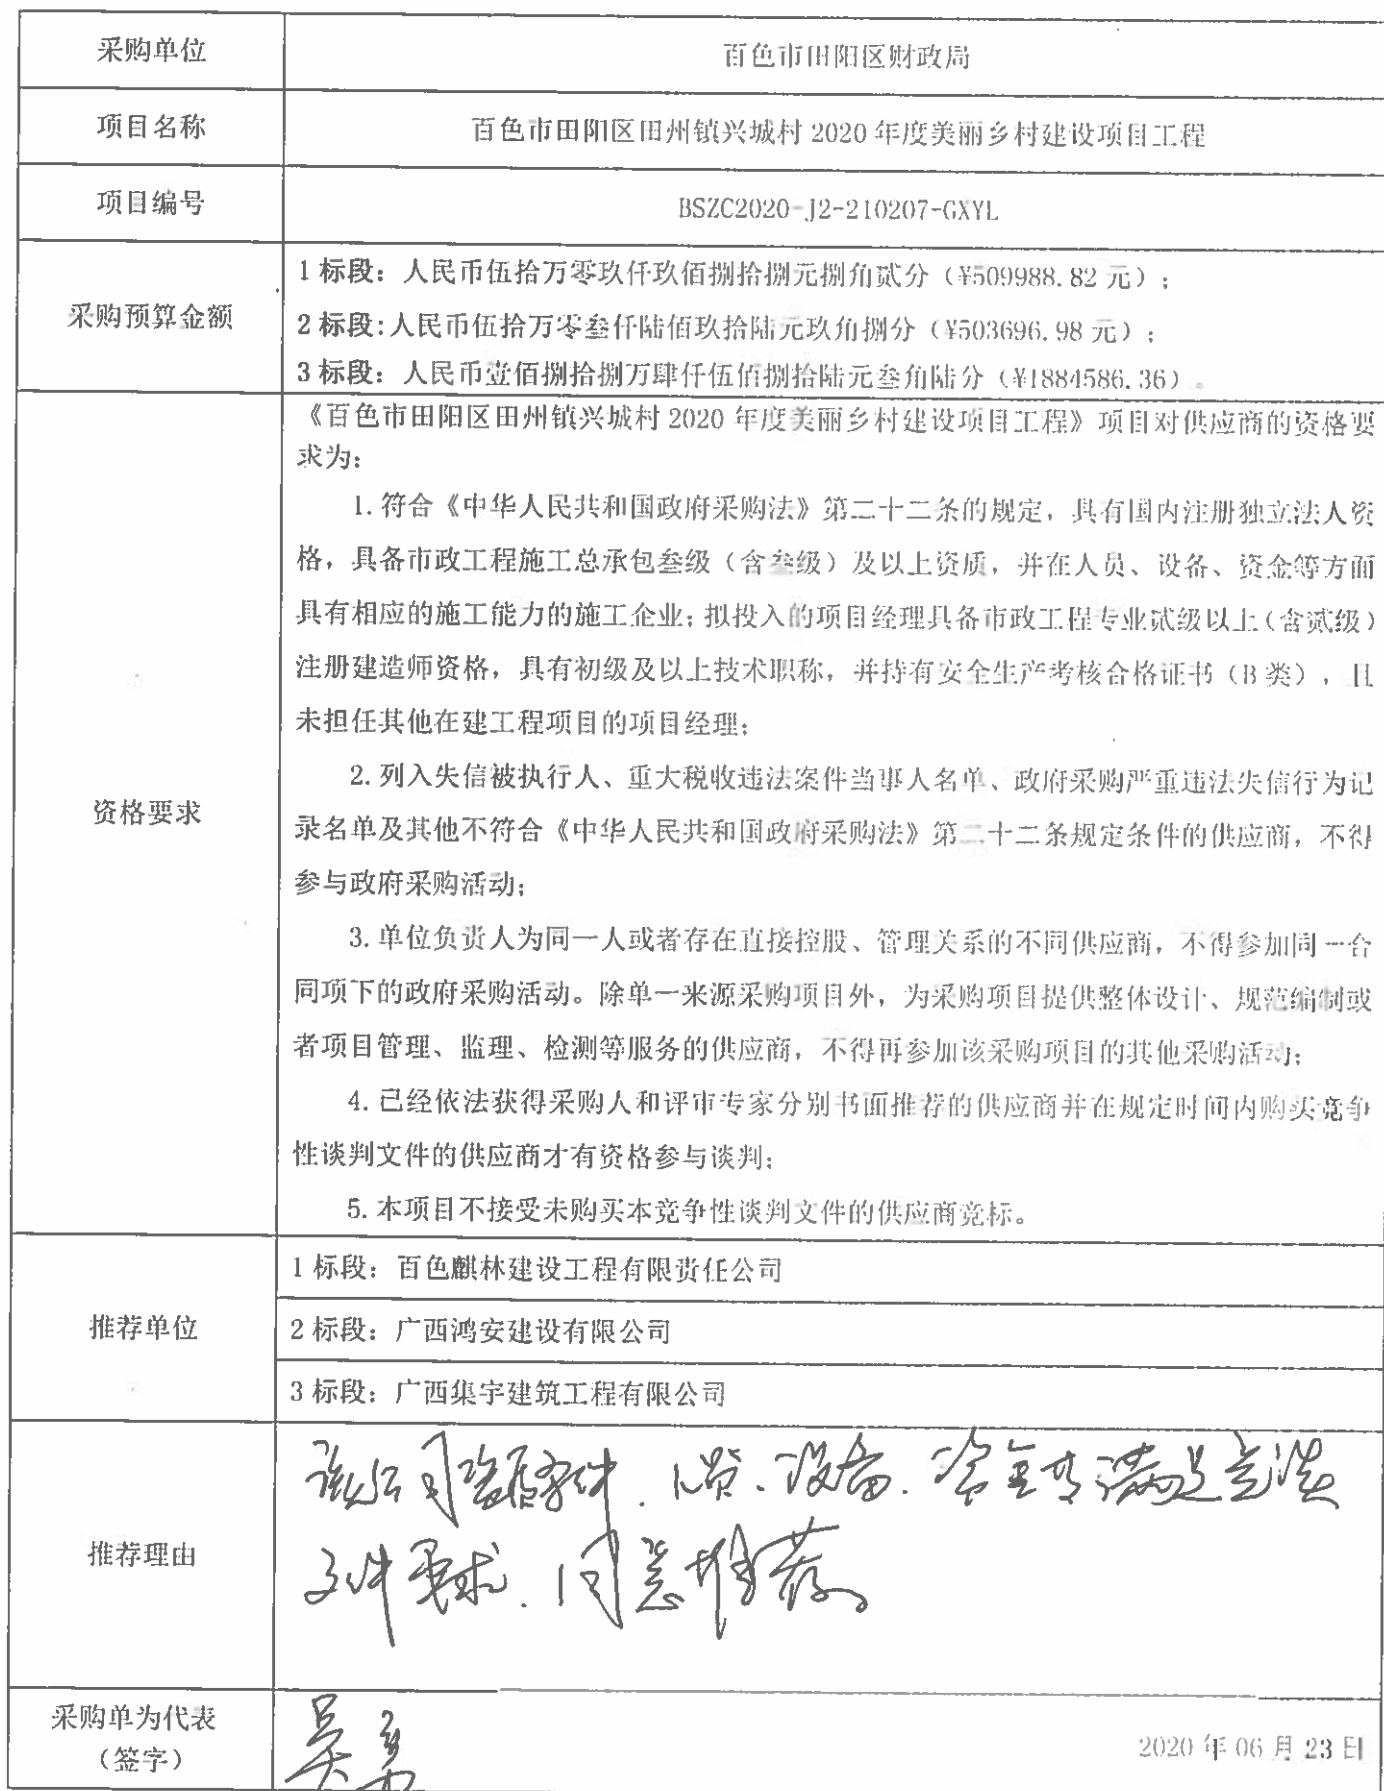 采购单位
百色市田阳区财政局
项目名称
百色市田阳区田州镇兴城村 2020 年度美丽乡村建设项目工程
项目编号
BSZC2020-J2-210207-GXYL
采购预算金额
1 标段：人民币伍拾万零玖仟玖佰捌拾捌元捌角贰分（¥509988.82 元）；
2 标段:人民币伍拾万零叁仟陆佰玖拾陆元玖角捌分（¥503696.98 元）；
3 标段：人民币壹佰捌拾捌万肆仟伍佰捌拾陆元叁角陆分（¥1884586.36）。
资格要求
《百色市田阳区田州镇兴城村 2020 年度美丽乡村建设项目工程》项目对供应商的资格要
求为：
1.符合《中华人民共和国政府采购法》第二十二条的规定，具有国内注册独立法人资
格，具备市政工程施工总承包叁级（含叁级）及以上资质，并在人员、设备、资金等方面
具有相应的施工能力的施工企业；拟投入的项目经理具备市政工程专业贰级以上（含贰级）
注册建造师资格，具有初级及以上技术职称，并持有安全生产考核合格证书（B 类），且
未担任其他在建工程项目的项目经理；
2.列入失信被执行人、重大税收违法案件当事人名单、政府采购严重违法失信行为记
录名单及其他不符合《中华人民共和国政府采购法》第二十二条规定条件的供应商，不得
参与政府采购活动；
3.单位负责人为同一人或者存在直接控股、管理关系的不同供应商，不得参加同一合
同项下的政府采购活动。除单一来源采购项目外，为采购项目提供整体设计、规范编制或
者项目管理、监理、检测等服务的供应商，不得再参加该采购项目的其他采购活动；
4.已经依法获得采购人和评审专家分别书面推荐的供应商并在规定时间内购买竞争
性谈判文件的供应商才有资格参与谈判；
5.本项目不接受未购买本竞争性谈判文件的供应商竞标。
推荐单位
1 标段：百色麒林建设工程有限责任公司
2 标段：广西鸿安建设有限公司
3 标段：广西集宇建筑工程有限公司
推荐理由
该公司资质条件、人员、设备、资金等满足竞谈
文件要求、同意推荐。
采购单为代表
（签字）
吴勇
2020 年 06 月 23 日